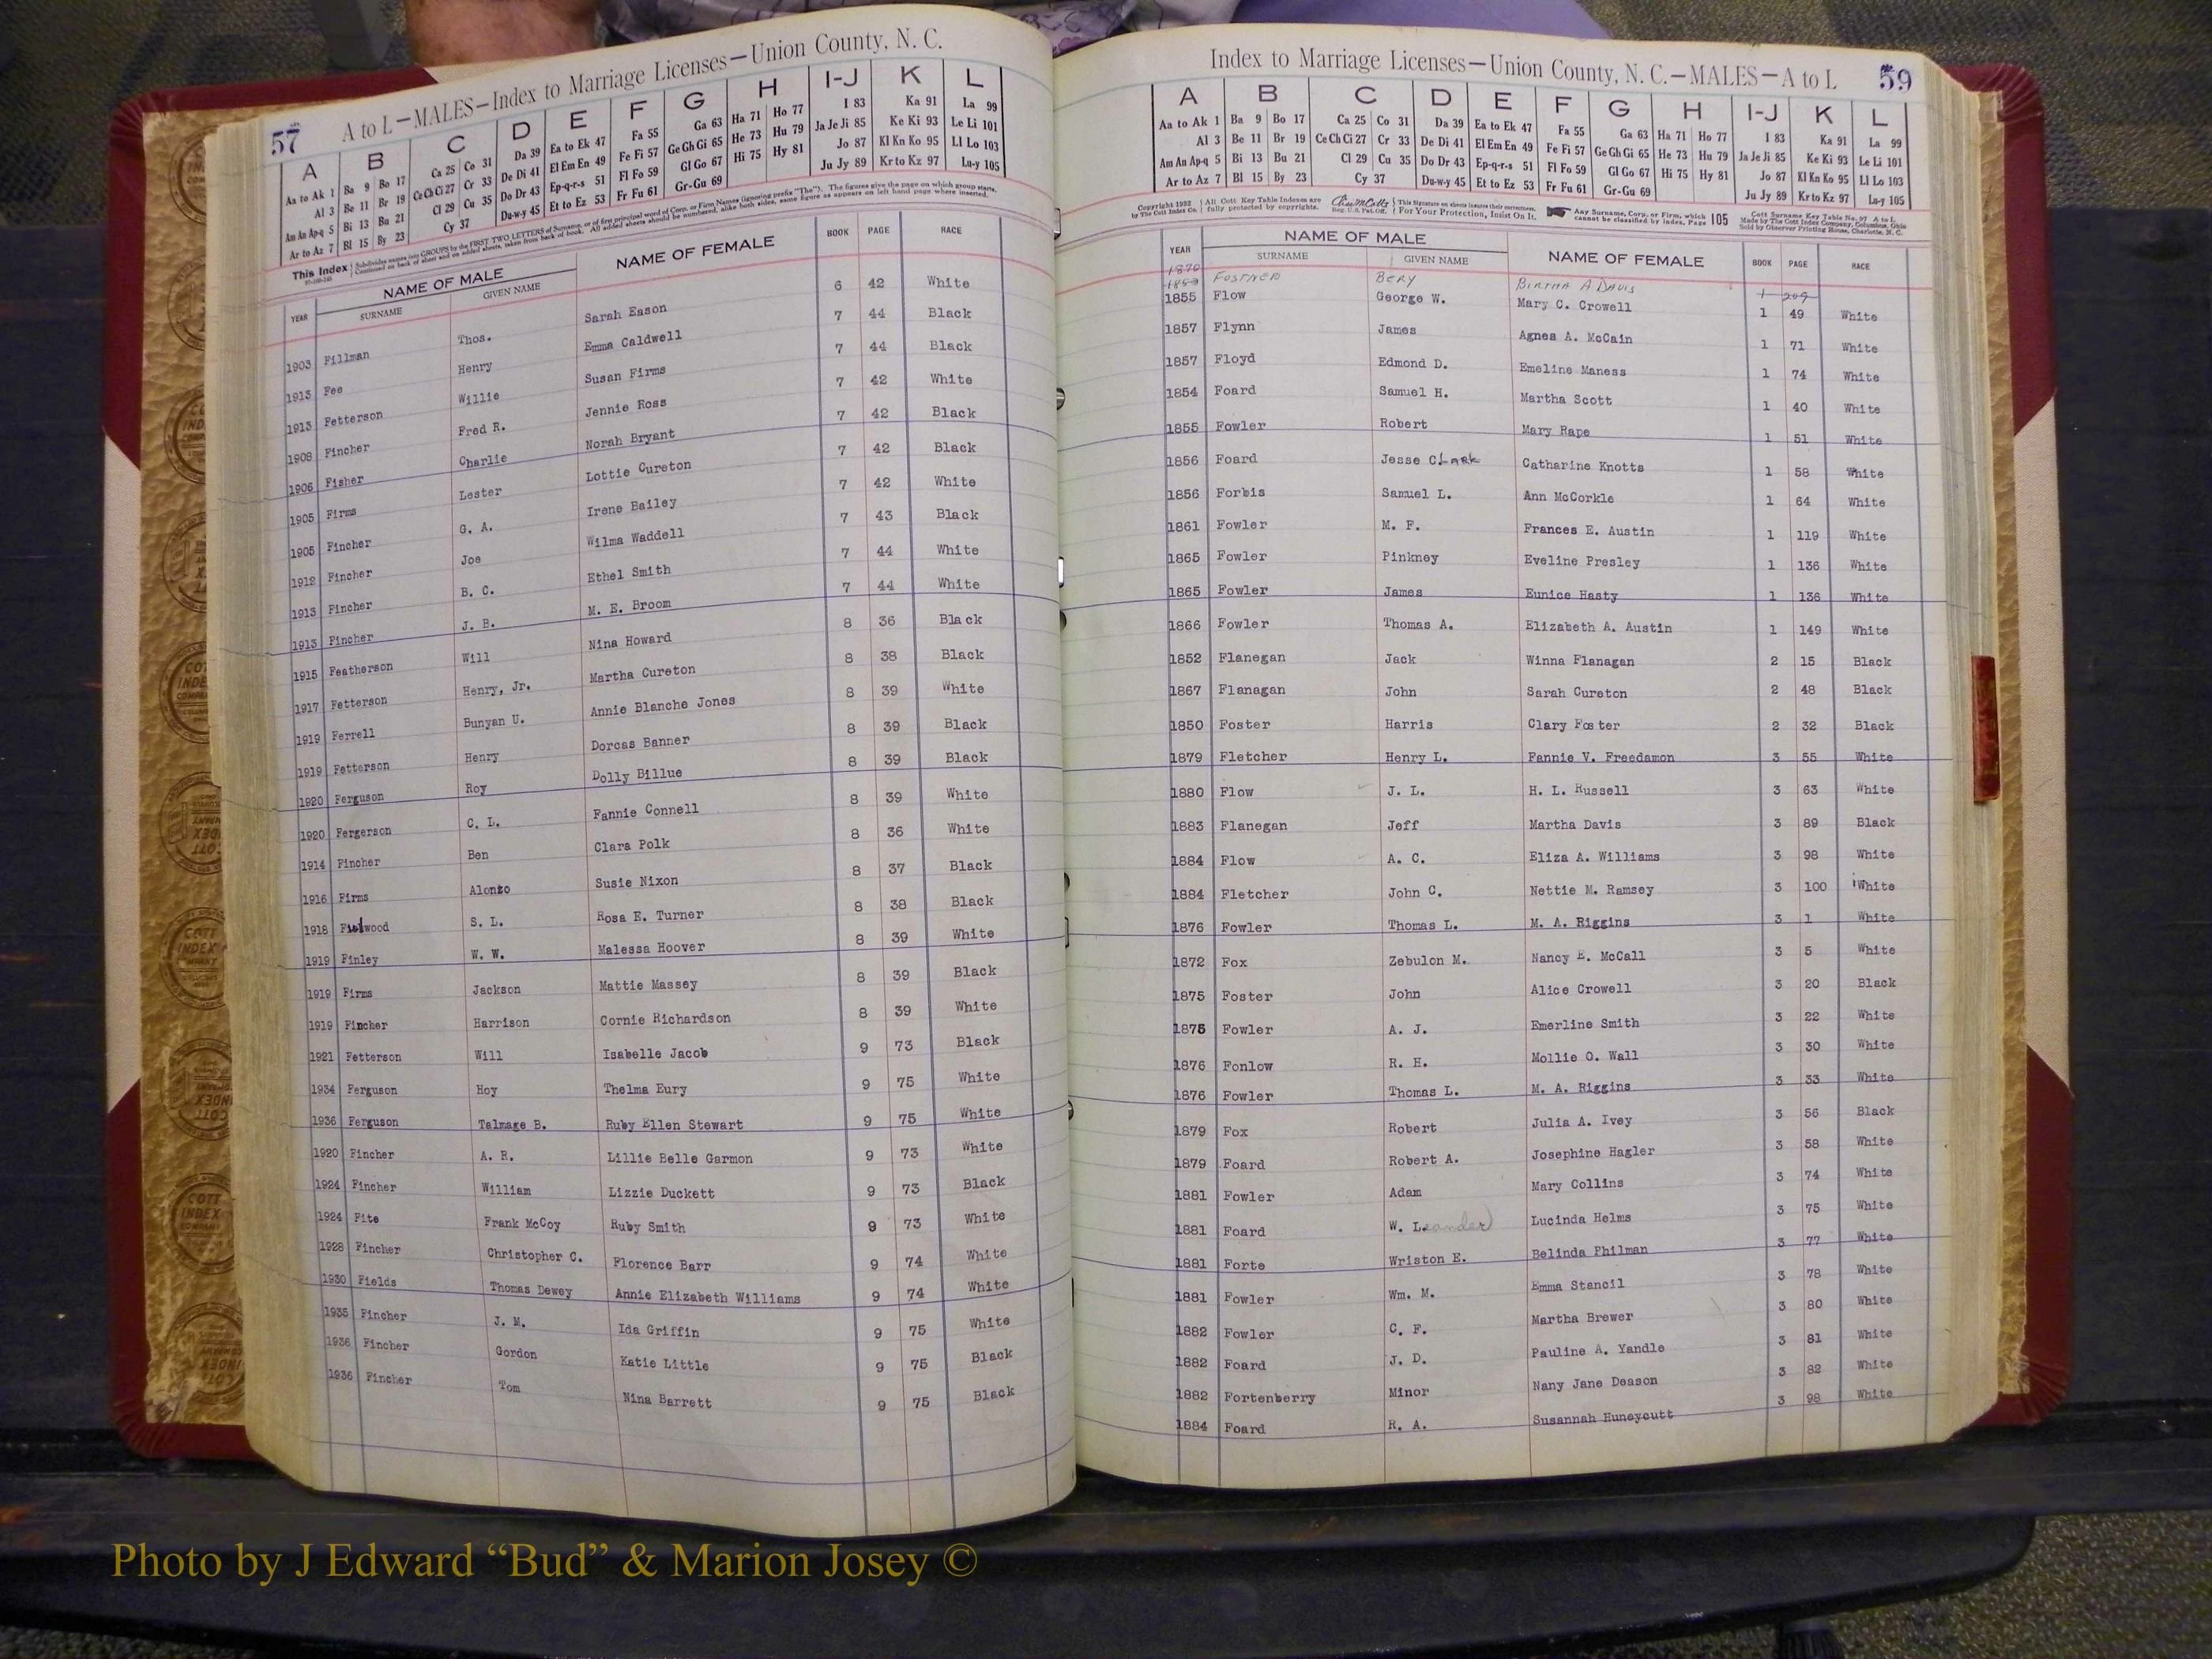 57
A to L—MALES—Index to Marriage Licenses—Union County, N. C.
A B C D E F G H I-J K L
Aa to Ak 1 Ba 9 Bo 17 Ca 25 Co 31 Da 39 Ea to Ek 47 Fa 55 Ga 63 Ha 71 Ho 77 I 83 Ka 91 La 99
Al 3 Be 11 Br 19 Ce Ch Ci 27 Cr 33 De Di 41 El Em En 49 Fe Fi 57 Ge Gh Gi 65 He 73 Hu 79 Ja Je Ji 85 Ke Ki 93 Le Li 101
Am An Ap-q 5 Bi 13 Bu 21 Cl 29 Cu 35 Do Dr 43 Ep-q-r-s 51 Fl Fo 59 Gl Go 67 Hi 75 Hy 81 Jo 87 Kl Kn Ko 95 Ll Lo 103
Ar to Az 7 Bl 15 By 23 Cy 37 Du-w-y 45 Et to Ez 53 Fr Fu 61 Gr-Gu 69 Ju Jy 89 Kr to Kz 97 Lu-y 105
This Index Subdivides names into GROUPS by the FIRST TWO LETTERS of Surname, or of first principal word of Corp. or Firm Names (ignoring prefix "The"). The figures give the page on which group starts.
Continued on back of sheet and on added sheets, taken from back of book. All added sheets should be numbered, alike both sides, same figure as appears on left hand page where inserted.
YEAR NAME OF MALE NAME OF FEMALE BOOK PAGE RACE
SURNAME GIVEN NAME
1903 Fillman Thos. Sarah Eason 6 42 White
1913 Fee Henry Emma Caldwell 7 44 Black
1913 Fetterson Willie Susan Firms 7 44 Black
1908 Fincher Fred R. Jennie Ross 7 42 White
1906 Fisher Charlie Norah Bryant 7 42 Black
1905 Firms Lester Lottie Cureton 7 42 Black
1905 Fincher G. A. Irene Bailey 7 42 White
1912 Fincher Joe Wilma Waddell 7 43 Black
1913 Fincher B. C. Ethel Smith 7 44 White
1913 Fincher J. B. M. E. Broom 7 44 White
1915 Featherson Will Nina Howard 8 36 Black
1917 Fetterson Henry, Jr. Martha Cureton 8 38 Black
1919 Ferrell Bunyan U. Annie Blanche Jones 8 39 White
1919 Fetterson Henry Dorcas Banner 8 39 Black
1920 Ferguson Roy Dolly Billue 8 39 Black
1920 Fergerson C. L. Fannie Connell 8 39 White
1914 Fincher Ben Clara Polk 8 36 White
1916 Firms Alonzo Susie Nixon 8 37 Black
1918 S. L. Rosa E. Turner 8 38 Black
1919 Finley W. W. Malessa Hoover 8 39 White
1919 Firms Jackson Mattie Massey 8 39 Black
1919 Fincher Harrison Cornie Richardson 8 39 White
1921 Fetterson Will Isabelle Jacob 9 73 Black
1934 Ferguson Hoy Thelma Eury 9 75 White
1936 Ferguson Talmage B. Ruby Ellen Stewart 9 75 White
1920 Fincher A. R. Lillie Belle Garmon 9 73 White
1924 Fincher William Lizzie Duckett 9 73 Black
1924 Fite Frank McCoy Ruby Smith 9 73 White
1928 Fincher Christopher C. Florence Barr 9 74 White
1930 Fields Thomas Dewey Annie Elizabeth Williams 9 74 White
1935 Fincher J. M. Ida Griffin 9 75 White
1936 Fincher Gordon Katie Little 9 75 Black
1936 Fincher Tom Nina Barrett 9 75 Black
Index to Marriage Licenses—Union County, N. C.—MALES—A to L 59
A B C D E F G H I-J K L
Aa to Ak 1 Ba 9 Bo 17 Ca 25 Co 31 Da 39 Ea to Ek 47 Fa 55 Ga 63 Ha 71 Ho 77 I 83 Ka 91 La 99
Al 3 Be 11 Br 19 Ce Ch Ci 27 Cr 33 De Di 41 El Em En 49 Fe Fi 57 Ge Gh Gi 65 He 73 Hu 79 Ja Je Ji 85 Ke Ki 93 Le Li 101
Am An Ap-q 5 Bi 13 Bu 21 Cl 29 Cu 35 Do Dr 43 Ep-q-r-s 51 Fl Fo 59 Gl Go 67 Hi 75 Hy 81 Jo 87 Kl Kn Ko 95 Ll Lo 103
Ar to Az 7 Bl 15 By 23 Cy 37 Du-w-y 45 Et to Ez 53 Fr Fu 61 Gr-Gu 69 Ju Jy 89 Kr to Kz 97 Lu-y 105
Copyright 1932 All Cott Key Table Indexes are This Signature on sheets insures their correctness. Any Surname, Corp. or Firm, which 105 Cott Surname Key Table No. 97 A to L
by The Cott Index Co. fully protected by copyrights. Reg. U.S. Pat. Off. For Your Protection, Insist On It. cannot be classified by Index, Page Made by The Cott Index Company, Columbus, Ohio
Sold by Observer Printing House, Charlotte, N. C.
YEAR NAME OF MALE NAME OF FEMALE BOOK PAGE RACE
SURNAME GIVEN NAME
1870 Bery Birtha A Davis 1 209
1855 Flow George W. Mary C. Crowell 1 49 White
1857 Flynn James Agnes A. McCain 1 71 White
1857 Floyd Edmond D. Emeline Maness 1 74 White
1854 Foard Samuel H. Martha Scott 1 40 White
1855 Fowler Robert Mary Rape 1 51 White
1856 Foard Jesse Clark Catharine Knotts 1 58 White
1856 Forbis Samuel L. Ann McCorkle 1 64 White
1861 Fowler M. F. Frances E. Austin 1 119 White
1865 Fowler Pinkney Eveline Presley 1 136 White
1865 Fowler James Eunice Hasty 1 136 White
1866 Fowler Thomas A. Elizabeth A. Austin 1 149 White
1852 Flanegan Jack Winna Flanagan 2 15 Black
1867 Flanagan John Sarah Cureton 2 48 Black
1850 Foster Harris Clary Foster 2 32 Black
1879 Fletcher Henry L. Fannie V. Freedamon 3 55 White
1880 Flow J. L. H. L. Russell 3 63 White
1883 Flanegan Jeff Martha Davis 3 89 Black
1884 Flow A. C. Eliza A. Williams 3 98 White
1884 Fletcher John C. Nettie M. Ramsey 3 100 White
1876 Fowler Thomas L. M. A. Riggins 3 1 White
1872 Fox Zebulon M. Nancy E. McCall 3 5 White
1875 Foster John Alice Crowell 3 20 Black
1875 Fowler A. J. Emerline Smith 3 22 White
1876 Fonlow R. H. Mollie O. Wall 3 30 White
1876 Fowler Thomas L. M. A. Riggins 3 33 White
1879 Fox Robert Julia A. Ivey 3 56 Black
1879 Foard Robert A. Josephine Hagler 3 58 White
1881 Fowler Adam Mary Collins 3 74 White
1881 Foard W. Leander Lucinda Helms 3 75 White
1881 Forte Wriston E. Belinda Philman 3 77 White
1881 Fowler Wm. M. Emma Stancil 3 78 White
1882 Fowler C. F. Martha Brewer 3 80 White
1882 Foard J. D. Pauline A. Yandle 3 81 White
1882 Fortenberry Minor Nany Jane Deason 3 82 White
1884 Foard R. A. Susannah Huneycutt 3 98 White
Photo by J Edward “Bud” & Marion Josey ©